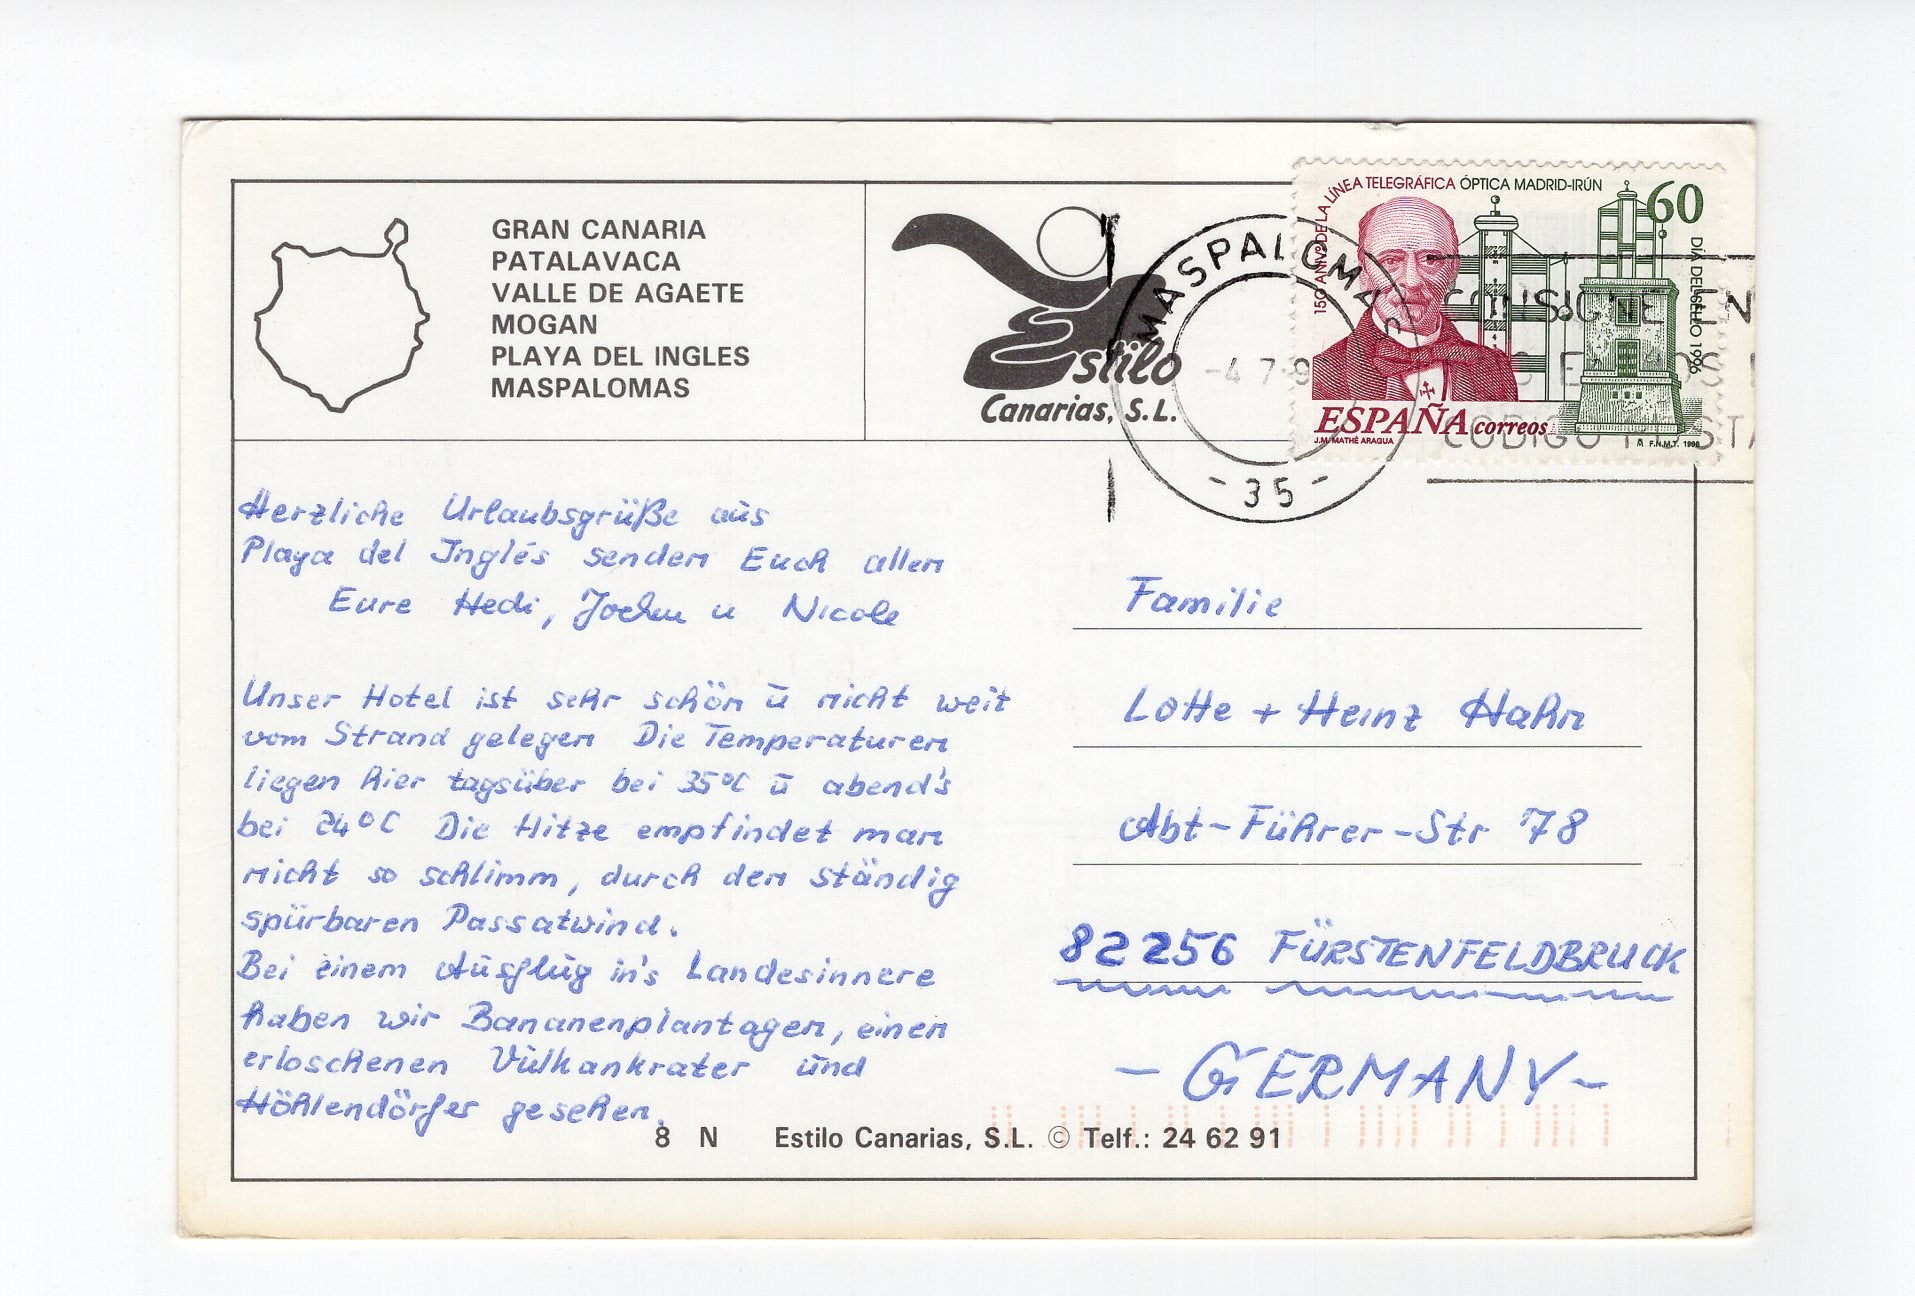 GRAN CANARIA
PATALAVACA
VALLE DE AGAETE
MOGAN
PLAYA DEL INGLES
MASPALOMAS
Estilo
Canarias, S.L.
MASPALOMAS
-4 7 9
- 35 -
150 ANIVº DE LA LÍNEA TELEGRÁFICA ÓPTICA MADRID-IRÚN
60
DÍA DEL SELLO 1996
ESPAÑA correos
J.M. MATHÉ ARAGUA
F.N.M.T. 1996
CONSIGNE IN
CODIGO
Herzliche Urlaubsgrüße aus
Playa del Inglés senden Euch allen
Eure Hedi, Jochen u Nicole
Unser Hotel ist sehr schön ū nicht weit
vom Strand gelegen Die Temperaturen
liegen hier tagsüber bei 35°C ū abend's
bei 24°C Die Hitze empfindet man
nicht so schlimm, durch den ständig
spürbaren Passatwind.
Bei einem Ausflug in's Landesinnere
haben wir Bananenplantagen, einen
erloschenen Vulkankrater und
Höhlendörfer gesehen.
Familie
Lotte + Heinz Hahn
Abt-Führer-Str 78
82256 FÜRSTENFELDBRUCK
- GERMANY -
8 N Estilo Canarias, S.L. © Telf.: 24 62 91